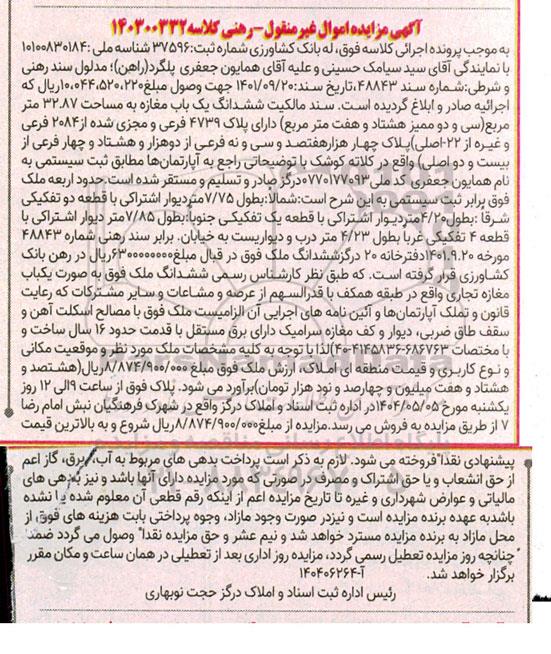 آگهی مزایده اموال غیر منقول-رهنی کلاسه ۱۴۰۳۰۰۳۳۲
به موجب پرونده اجرائی کلاسه فوق، له بانک کشاورزی شماره ثبت:۳۷۵۹۶ شناسه ملی :۱۰۱۰۰۸۳۰۱۸۴
با نمایندگی آقای سید سیامک حسینی و علیه آقای همایون جعفری پلگرد(راهن)؛ مدلول سند رهنی
و شرطی:شماره سند ۴۸۸۴۳،تاریخ سند:۱۴۰۱/۰۹/۲۰ جهت وصول مبلغ۱۰,۰۴۴,۵۲۰,۲۲۰ریال که
اجرائیه صادر و ابلاغ گردیده است. سند مالکیت ششدانگ یک باب مغازه به مساحت ۳۲.۸۷ متر
مربع(سی و دو ممیز هشتاد و هفت متر مربع) دارای پلاک ۴۷۳۹ فرعی و مجزی شده از۲۰۸۴ فرعی
و غیره از ۲۲-اصلی)پلاک چهار هزارهفتصد و سی و نه فرعی از دوهزار و هشتاد و چهار فرعی از
بیست و دو اصلی) واقع در کلاته کوشک با توضیحاتی راجع به آپارتمان‌ها مطابق ثبت سیستمی به
نام همایون جعفری کد ملی ۰۷۷۰۱۷۷۰۹۳درگز صادر و تسلیم و مستقر شده است حدود اربعه ملک
فوق برابر ثبت سیستمی به این شرح است:شمالا:بطول ۷/۷۵متردیوار اشتراکی با قطعه دو تفکیکی
شرقا :بطول۴/۲۰متردیوار اشتراکی با قطعه یک تفکیکی جنوبا:بطول ۷/۸۵متر دیوار اشتراکی با
قطعه ۴ تفکیکی غربا بطول ۴/۲۳ متر درب و دیواریست به خیابان. برابر سند رهنی شماره ۴۸۸۴۳
مورخه ۱۴۰۱.۹.۲۰دفترخانه ۲۰ درگزششدانگ ملک فوق در قبال مبلغ۶۳۰۰۰۰۰۰۰۰ریال در رهن بانک
کشاورزی قرار گرفته است. که طبق نظر کارشناس رسمی ششدانگ ملک فوق به صورت یکباب
مغازه تجاری واقع در طبقه همکف با قدرالسهم از عرصه و مشاعات و سایر مشترکات که رعایت
قانون و تملک آپارتمان‌ها و آئین نامه های اجرایی آن الزامیست ملک فوق با مصالح اسکلت آهن و
سقف طاق ضربی، دیوار و کف مغازه سرامیک دارای برق مستقل با قدمت حدود ۱۶ سال ساخت و
با مختصات ۶۸۶۷۶۳-۴۰۰۴۱۴۵۸۳۶)لذا با توجه به کلیه مشخصات ملک مورد نظر و موقعیت مکانی
و نوع کاربری و قیمت منطقه ای املاک، ارزش ملک فوق مبلغ ۸/۸۷۴/۹۰۰/۰۰۰ریال(هشتصد و
هشتاد و هفت میلیون و چهارصد و نود هزار تومان)برآورد می شود. پلاک فوق از ساعت ۹الی ۱۲ روز
یکشنبه مورخ ۱۴۰۴/۰۵/۰۵در اداره ثبت اسناد و املاک درگز واقع در شهرک فرهنگیان نبش امام رضا
۷ از طریق مزایده به فروش می رسد.مزایده از مبلغ۸/۸۷۴/۹۰۰/۰۰۰ریال شروع و به بالاترین قیمت
پیشنهادی نقدا"فروخته می شود. لازم به ذکر است پرداخت بدهی های مربوط به آب، برق، گاز اعم
از حق انشعاب و یا حق اشتراک و مصرف در صورتی که مورد مزایده دارای آنها باشد و نیز بدهی های
مالیاتی و عوارض شهرداری و غیره تا تاریخ مزایده اعم از اینکه رقم قطعی آن معلوم شده یا نشده
باشدبه عهده برنده مزایده است و نیزدر صورت وجود مازاد، وجوه پرداختی بابت هزینه های فوق از
محل مازاد به برنده مزایده مسترد خواهد شد و نیم عشر و حق مزایده نقدا" وصول می گردد ضمنا"
چنانچه روز مزایده تعطیل رسمی گردد، مزایده روز اداری بعد از تعطیلی در همان ساعت و مکان مقرر
برگزار خواهد شد. آ-۱۴۰۴۰۶۲۶۴
رئیس اداره ثبت اسناد و املاک درگز حجت نوبهاری